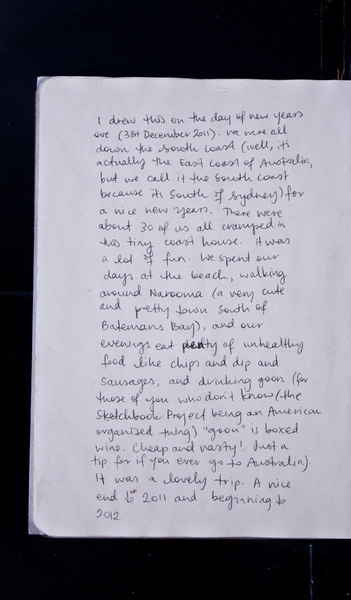 I drew this on the day of new years
eve (31st December 2011). We were all
down the south coast (well, its
actually the East coast of Australia,
but we call it the south coast
because its south of Sydney) for
a nice new years. There were
about 30 of us all cramped in
this tiny coast house. It was
a lot of fun. We spent our
days at the beach, walking
around Narooma (a very cute
and pretty town south of
Batemans Bay), and our
evenings eat plenty of unhealthy
food like chips and dip and
sausages, and drinking goon (for
those of you who don't know (the
Sketchbook Project being an American
organised thing) "goon" is boxed
wine. Cheap and nasty! Just a
tip for if you ever go to Australia).
It was a lovely trip. A nice
end to 2011 and beginning to
2012